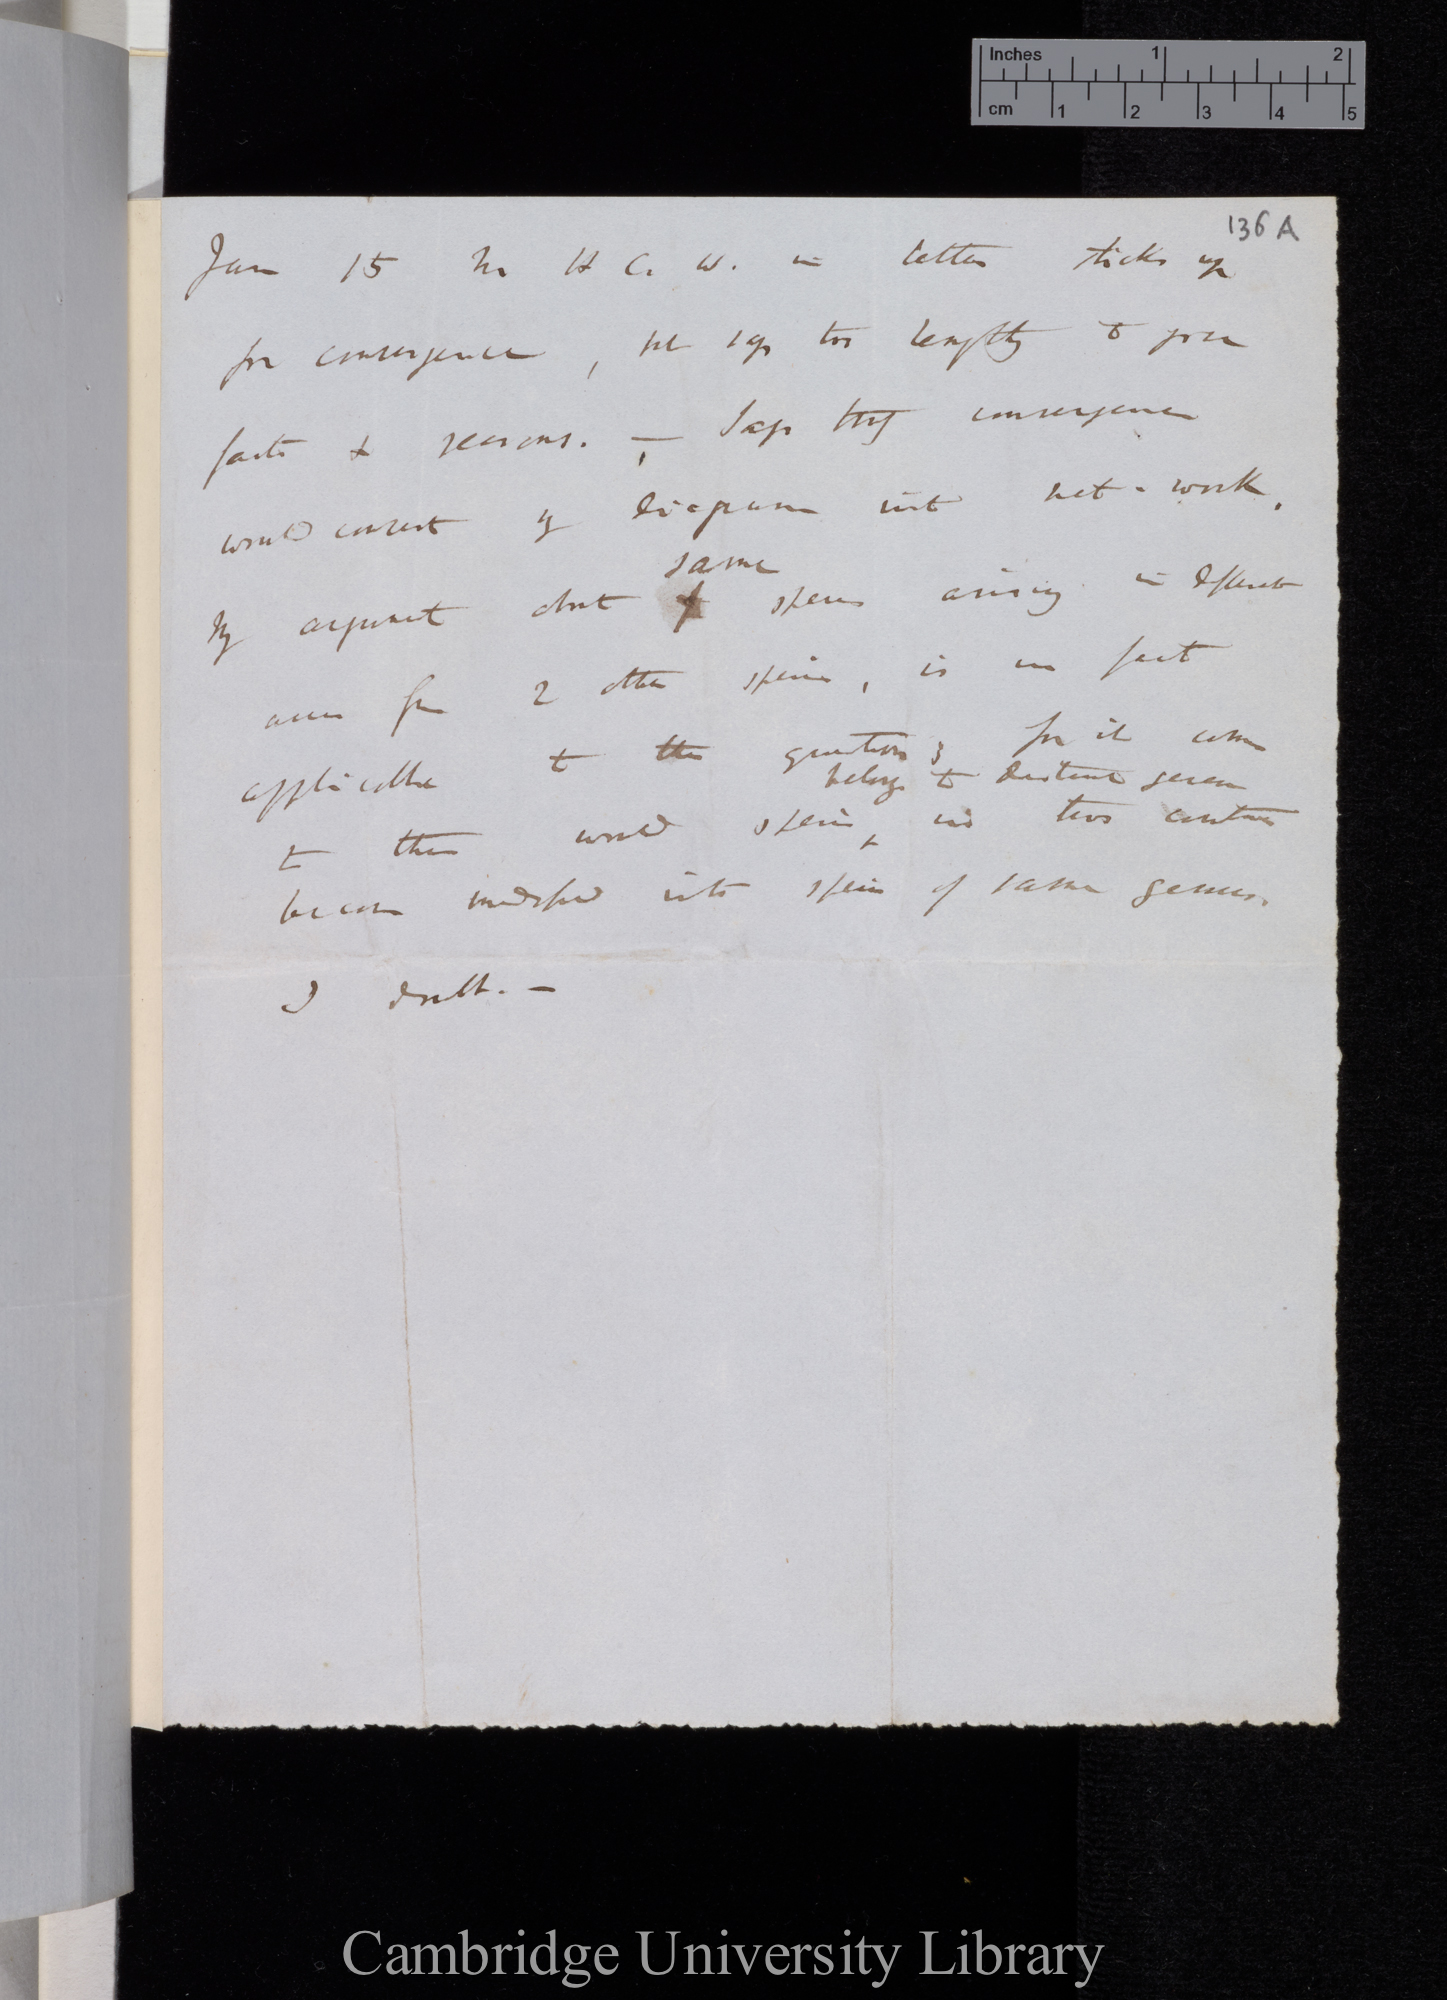 Inches 1 2
cm 1 2 3 4 5
136 A
Jan 15 Mr H C. W. in letter sticks up
for convergence, but says too lengthy to give
facts & reasons. — Says that convergence
would convert my diagram into net-work.
My argument about same species arising in different
areas from 2 other species, is in fact
applicable to the question; for it comes
belong to distinct genera
to this would species in two countries
become modified into species of same genus.
I doubt. —
Cambridge University Library